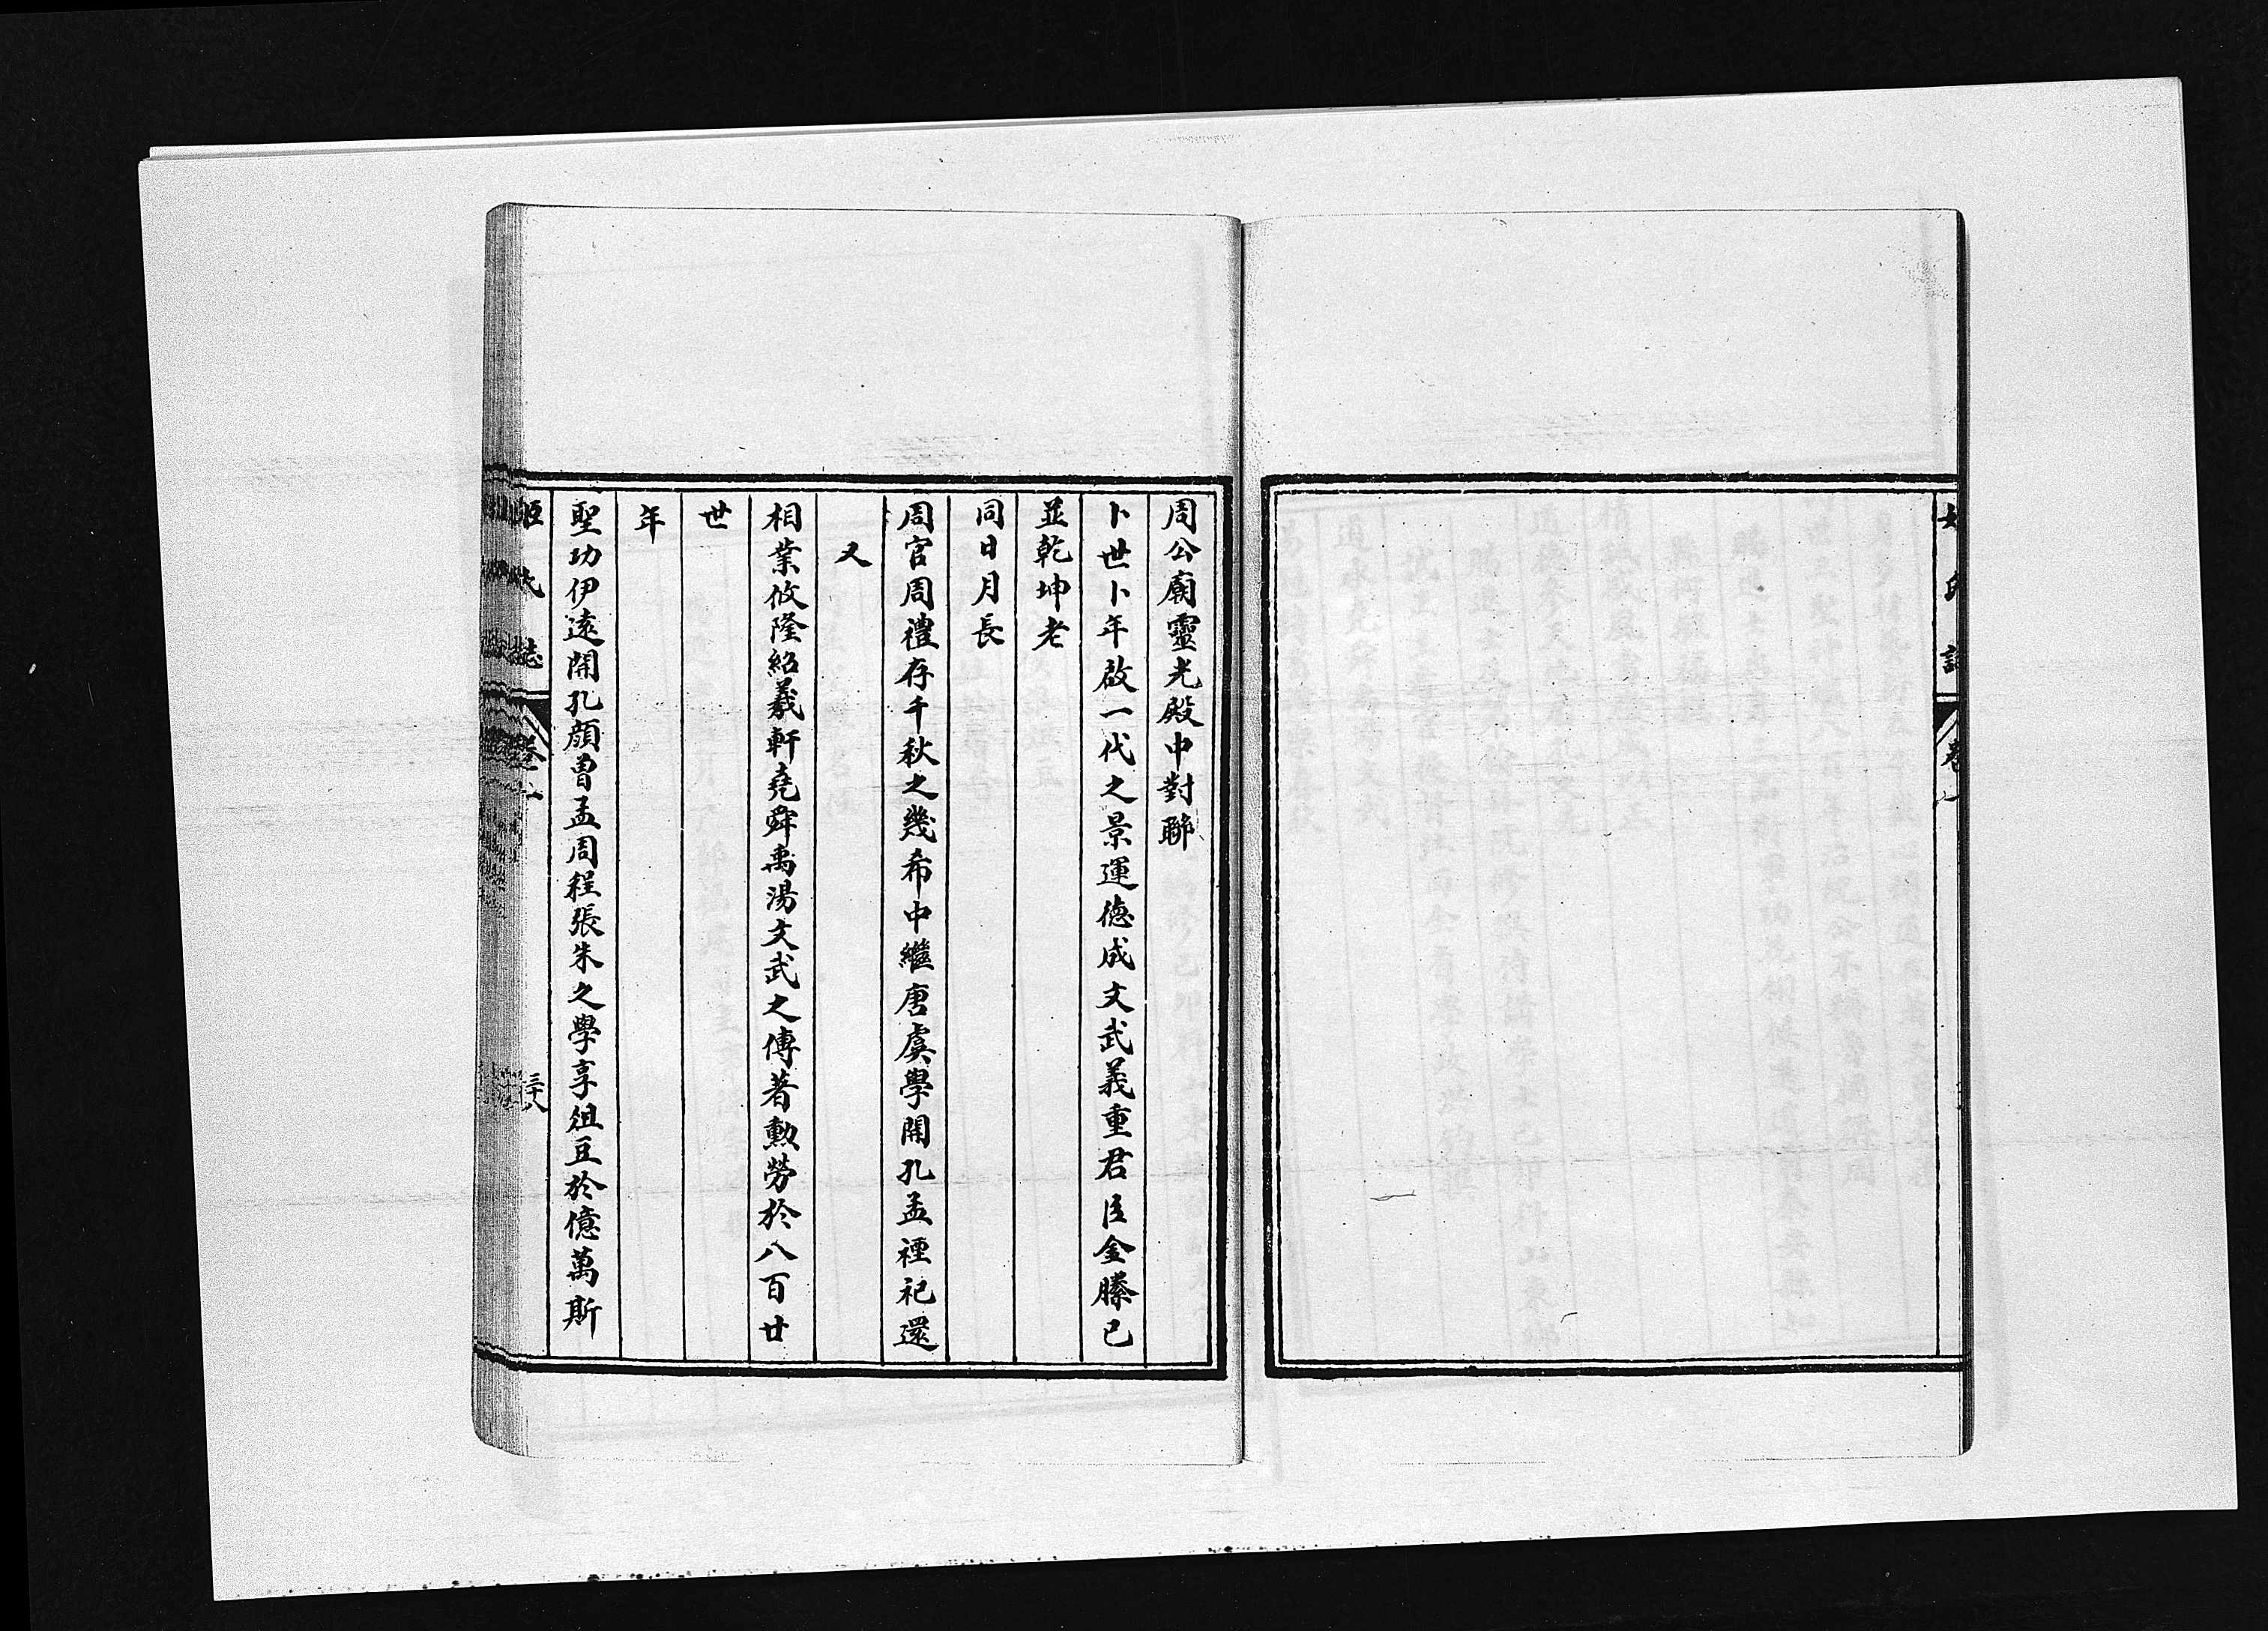 姬氏誌 卷一
周公廟靈光殿中對聯
卜世卜年啟一代之景運德成文武義重君臣金縢已
並乾坤老
同日月長
周官周禮存千秋之幾希中繼唐虞學開孔孟禋祀還
又
相業攸隆紹羲軒堯舜禹湯文武之傳著勳勞於八百廿
世
年
聖功伊遠開孔顏曾孟周程張朱之學享俎豆於億萬斯
姬氏誌 卷一 三十八